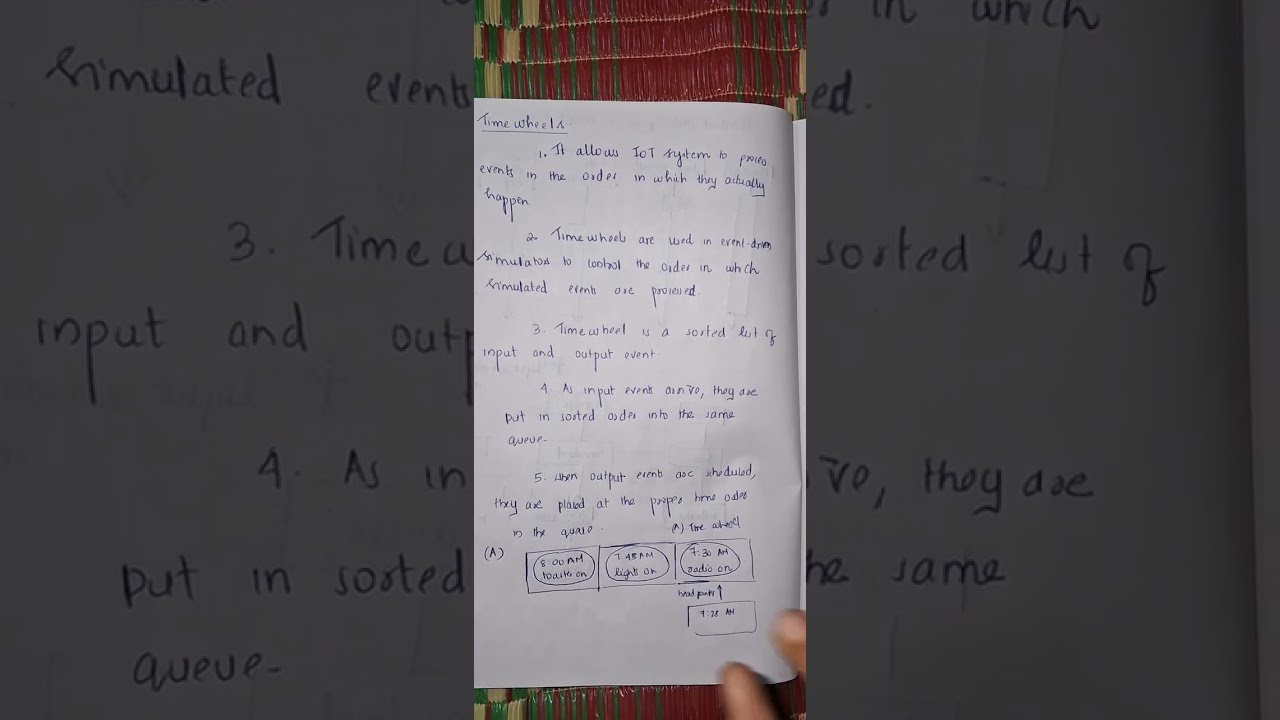 Time wheels.
1. It allows IoT system to process
events in the order in which they actually
happen
2. Time wheels are used in event-driven
simulators to control the order in which
simulated events are processed.
3. Time wheel is a sorted list of
input and output event.
4. As input events arrive, they are
put in sorted order into the same
queue-
5. when output events are scheduled,
they are placed at the proper time order
in the queue.
(A) Time wheel
(A)
8:00 AM
toaster on
7:45 AM
lights on
7:30 AM
radio on
head points
7:28 AM
in which
simulated events
ed.
3. Time w
sorted list of
input and outp
4. As in
ive, they are
put in sorted
he same
queue-